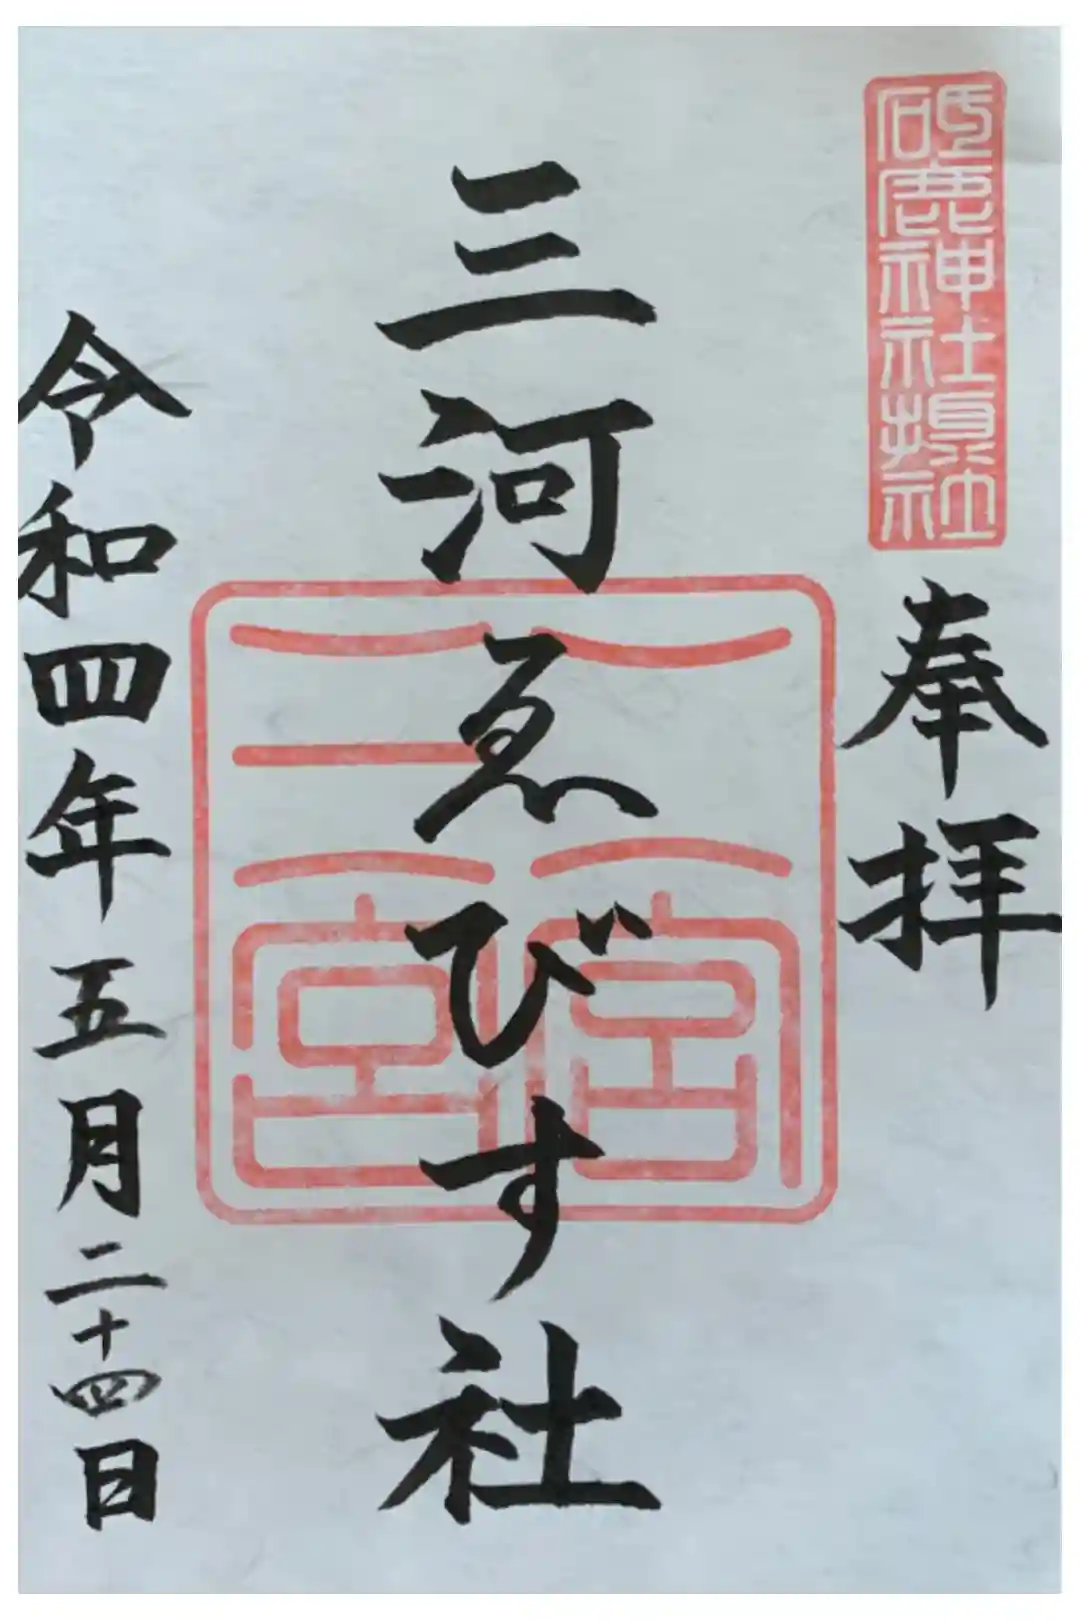 砥鹿神社境内社
奉拝
三河ゑびす社
二宮
三宮
令和四年五月二十四日